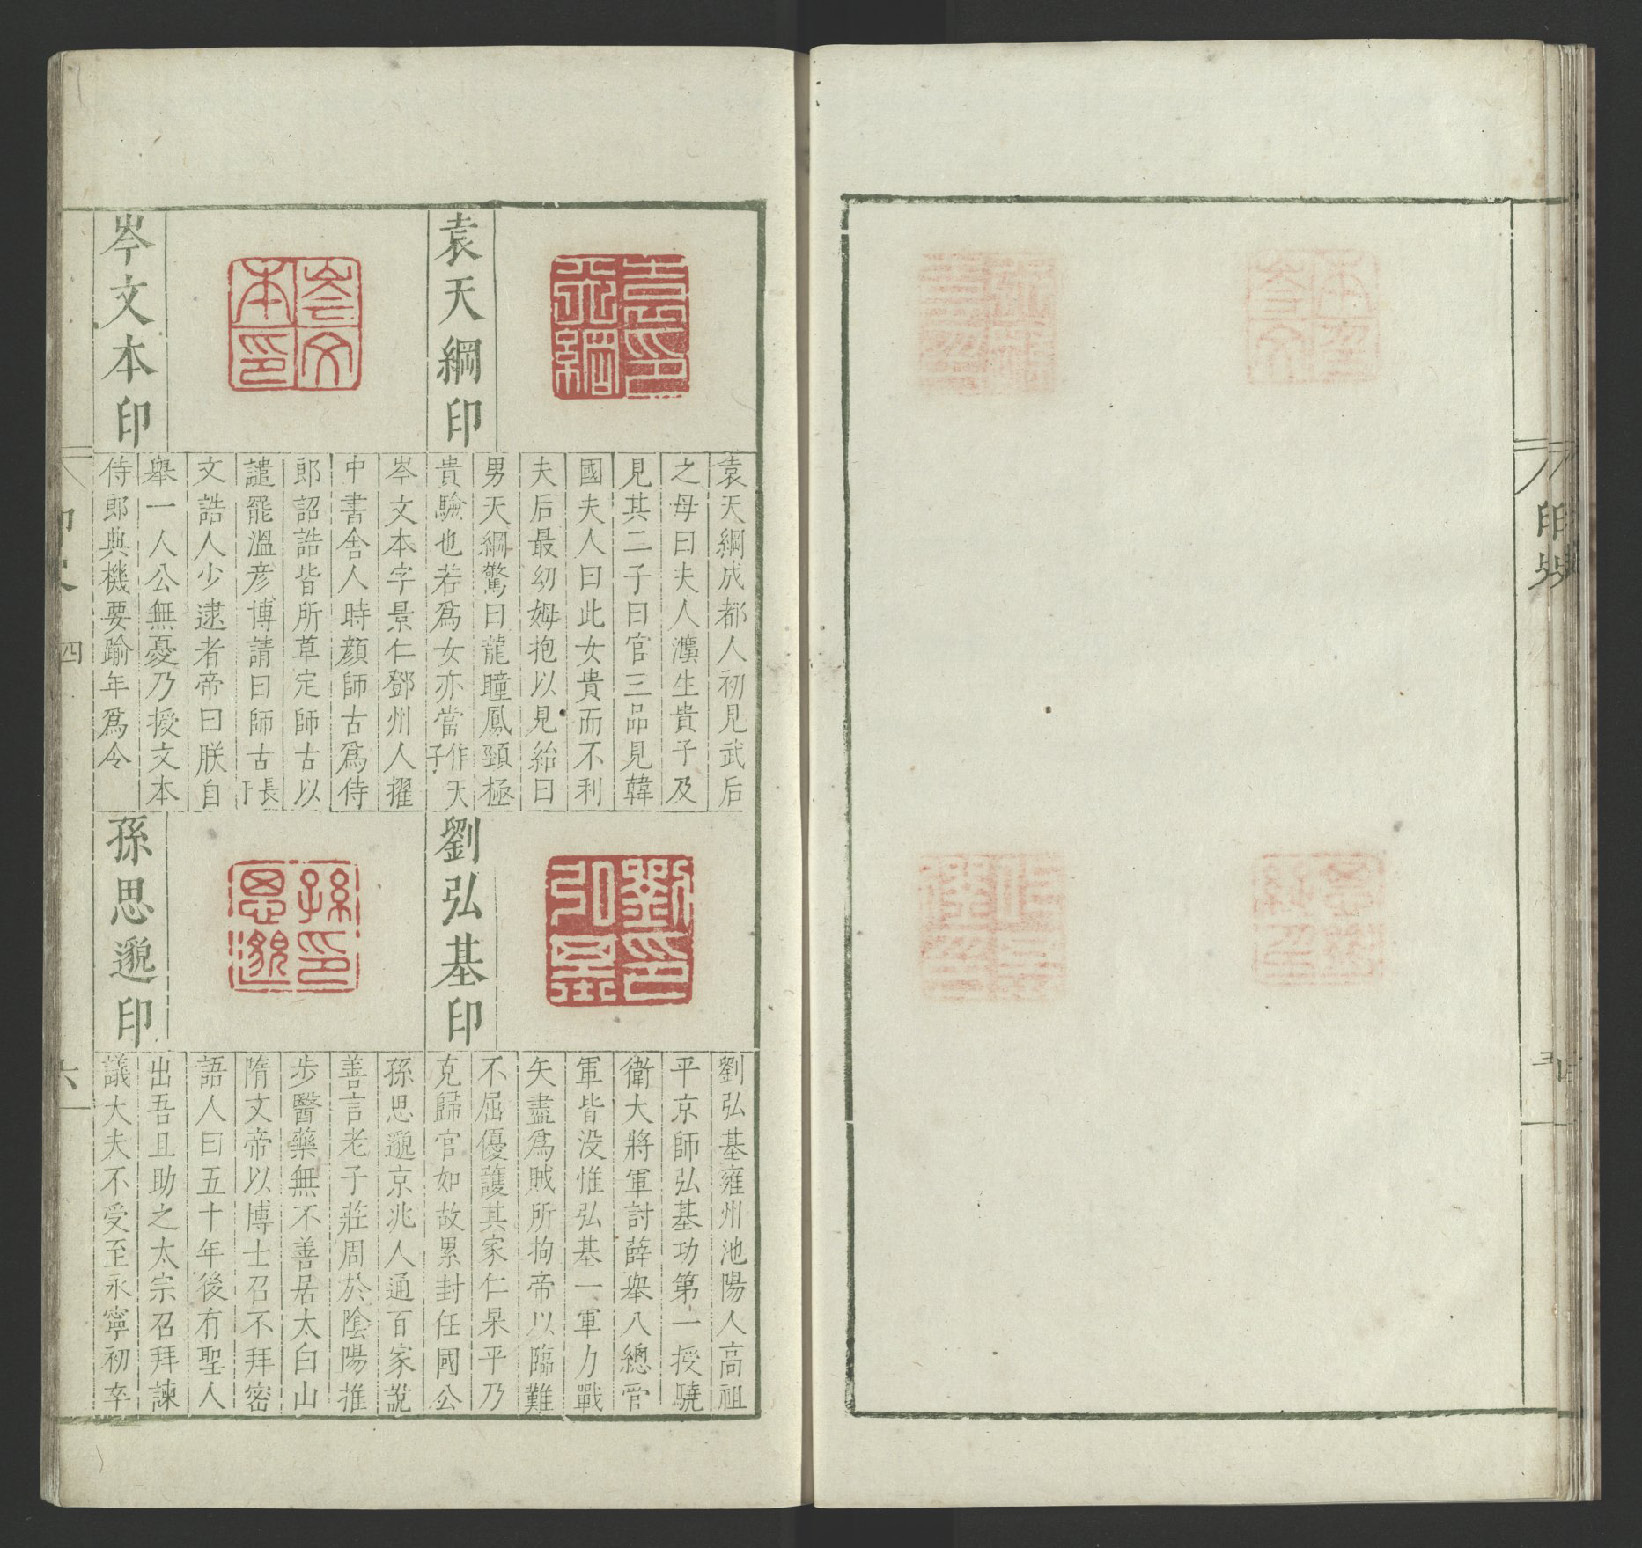 袁天綱印
袁天綱成都人初見武后
之母曰夫人灋生貴子及
見其二子曰官三品見韓
國夫人曰此女貴而不利
夫后最幼姆抱以見紿曰
男天綱驚曰龍瞳鳳頸極
貴驗也若爲女亦當作天子
岑文本印
岑文本字景仁鄧州人擢
中書舍人時顏師古爲侍
郎詔誥皆所草定師古以
譴罷溫彥博請曰師古長于
文誥人少逮者帝曰朕自
舉一人公無憂乃授文本
侍郎典機要踰年爲令
劉弘基印
劉弘基雍州池陽人高祖
平京師弘基功第一授驍
衛大將軍討薛舉八總管
軍皆没惟弘基一軍力戰
矢盡爲賊所拘帝以臨難
不屈優護其家仁杲平乃
克歸官如故累封任國公
孫思邈印
孫思邈京兆人通百家說
善言老子莊周於陰陽推
步醫藥無不善居太白山
隋文帝以博士召不拜密
語人曰五十年後有聖人
出吾且助之太宗召拜諫
議大夫不受至永寧初卒
袁印天綱
岑文本印
劉印弘基
孫印思邈
四
六